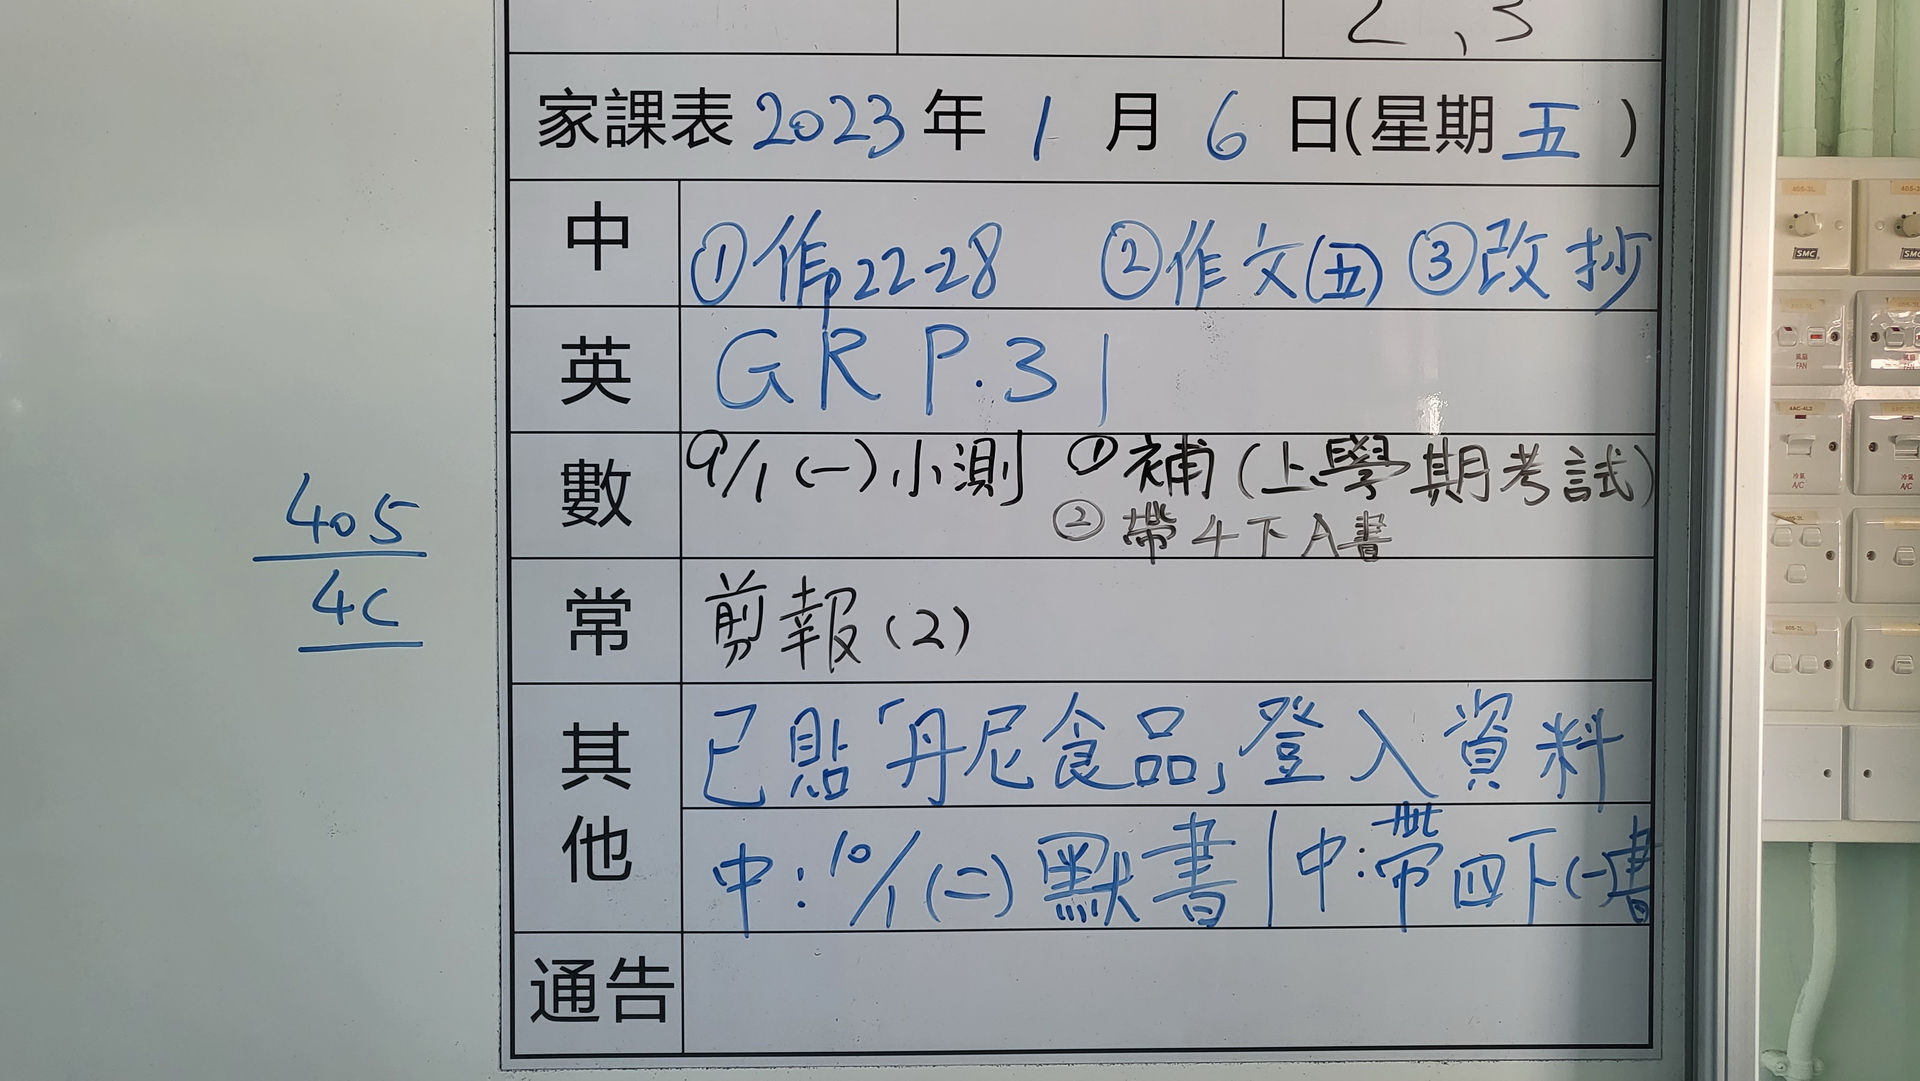 2,3
家課表 2023年 1 月 6 日(星期 五 )
中 ①作p22-28 ②作文(五) ③改抄
英 GR P.31
數 9/1 (一) 小測 ①補(上學期考試)
②帶4下A書
常 剪報(2)
其他 已貼「丹尼食品」登入資料
中:10/1(二)默書|中:帶四下(一)書
通告
405
4C
SMC
SMC
風扇
FAN
4AC-4L2
冷氣
A/C
冷氣
A/C
405-2L